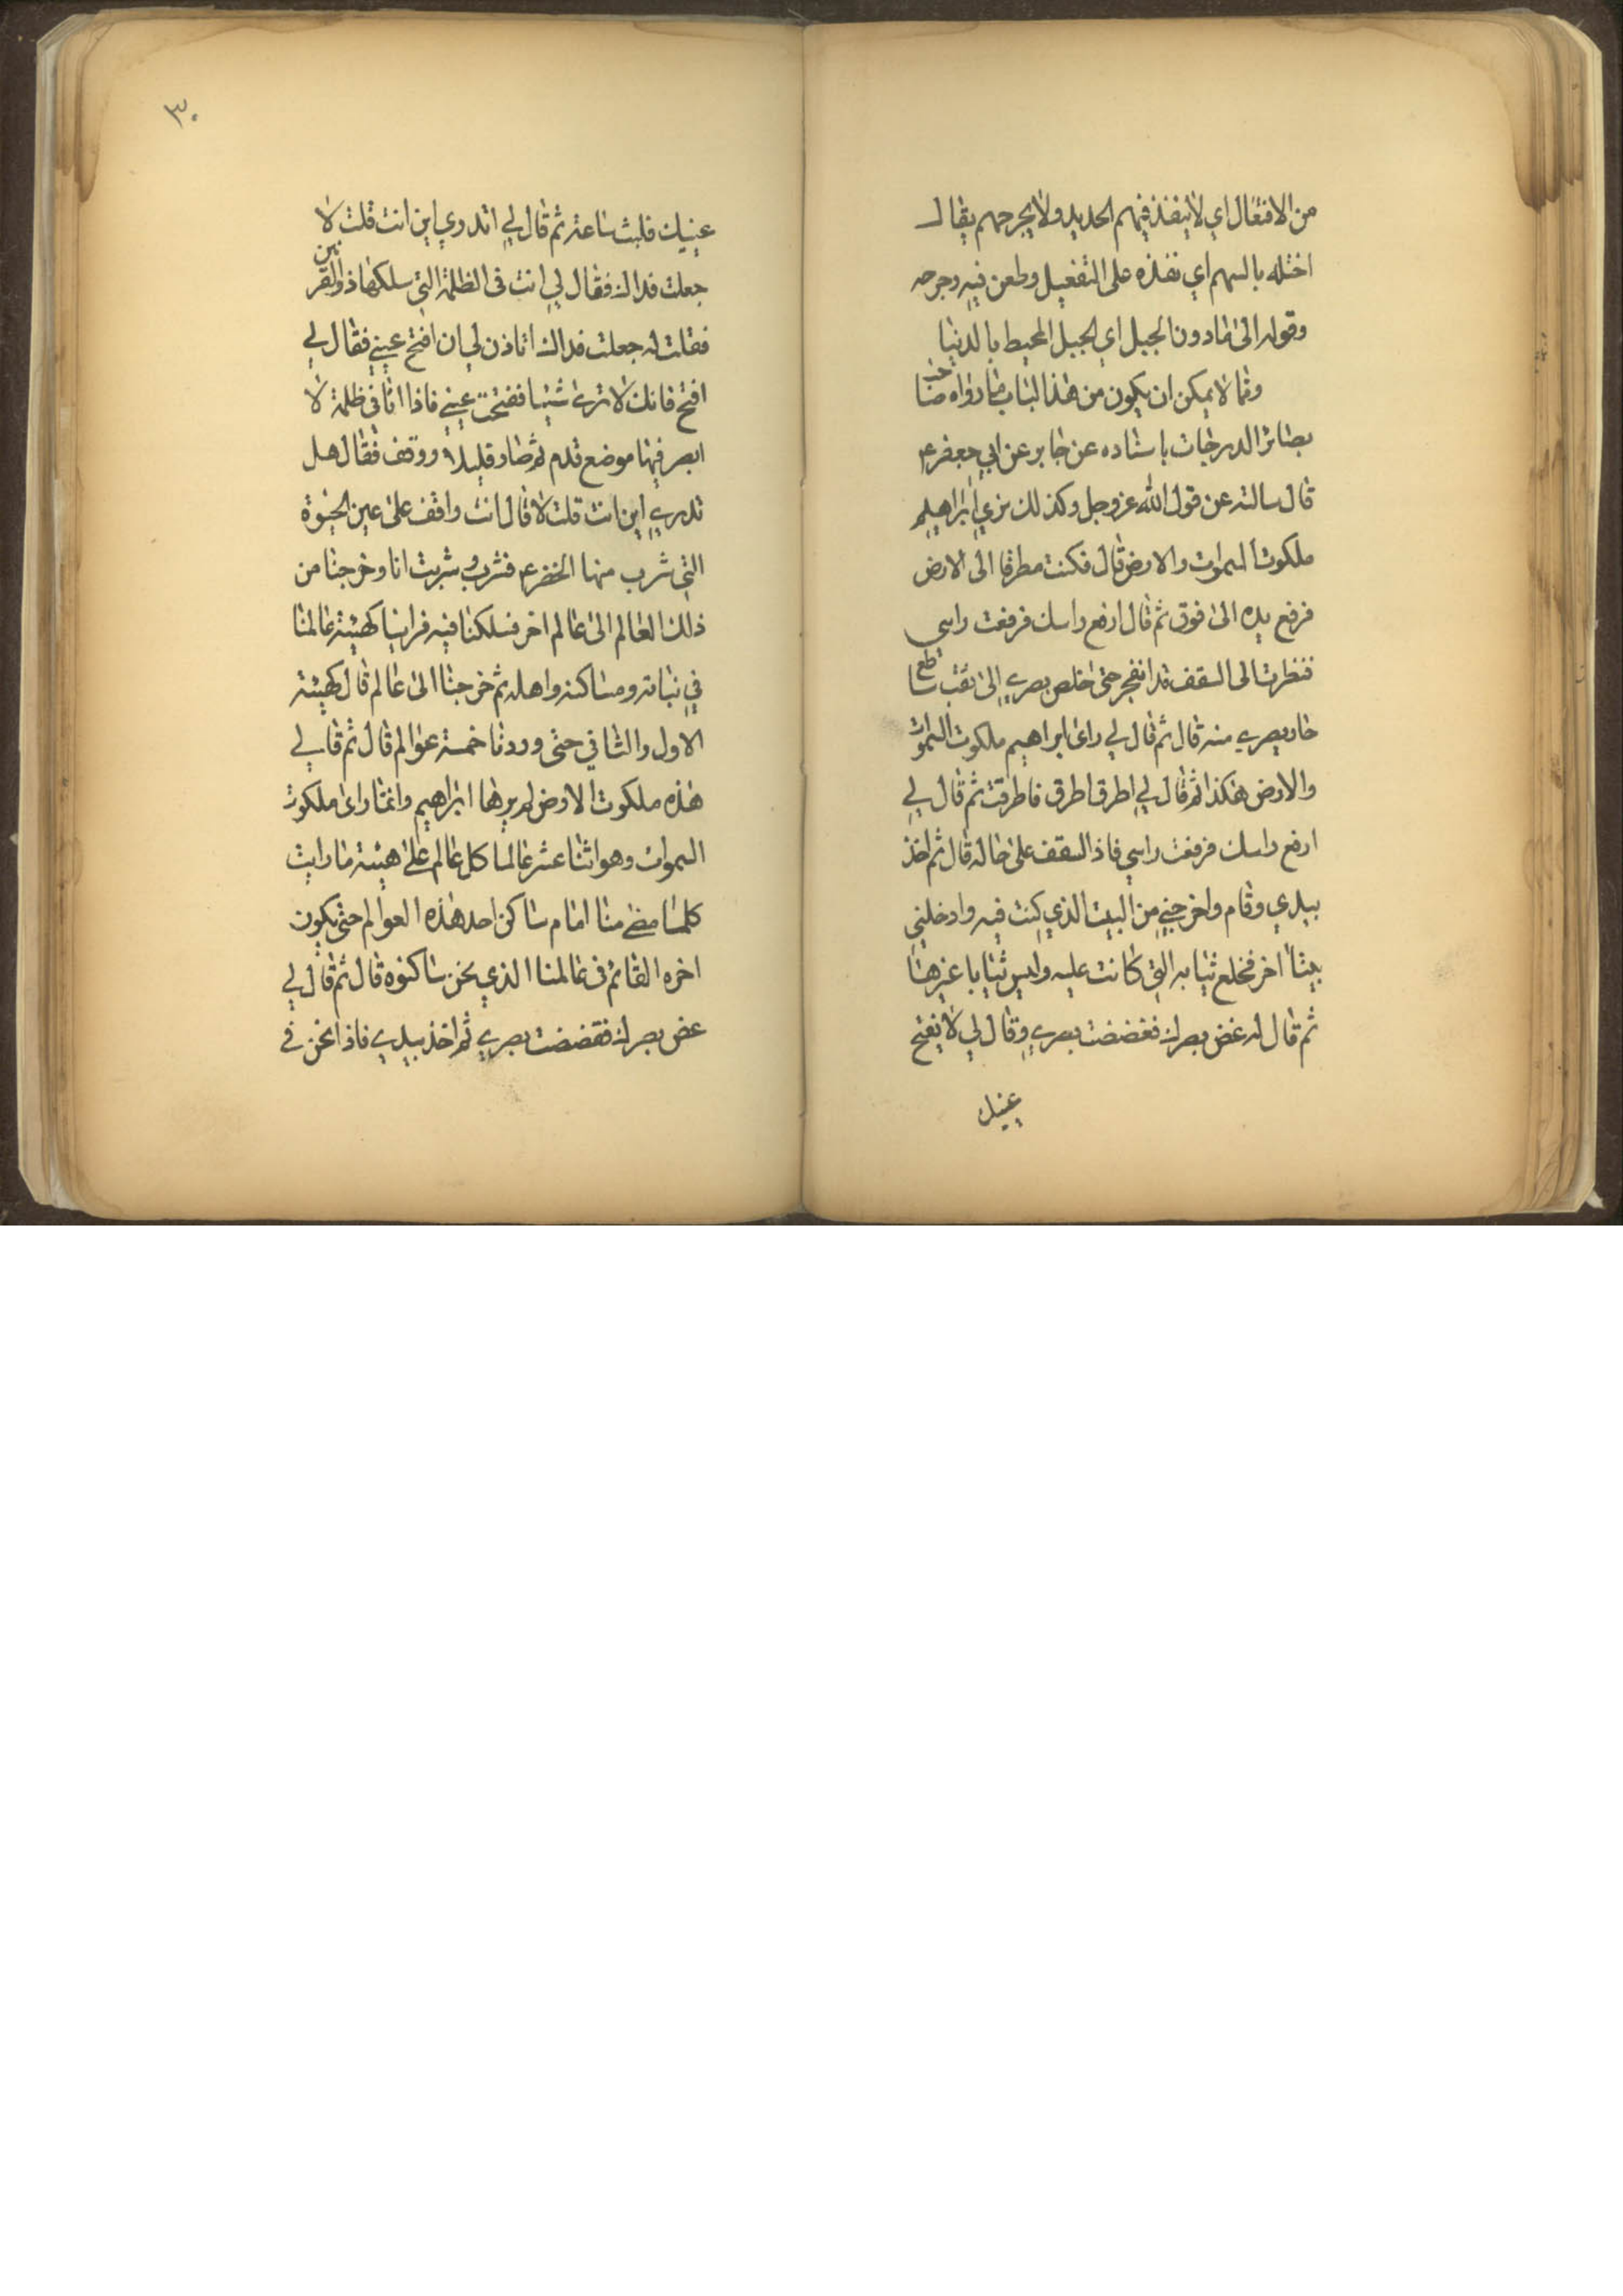 من الافتعال اي لا ينفذ فيهم الحديد ولا يجرحهم يقال
اختله بالسهم اي نفذه على التفعيل وطعن فيه وجرحه
وقوله الى ما دون الجبل اي الجبل المحيط بالدنيا
وما لا يمكن ان يكون من هذا الباب ما رواه صاحب
بصائر الدرجات باسناده عن جابر عن ابي جعفر ع
قال سالته عن قول الله عز وجل وكذلك نري ابراهيم
ملكوت السموات والارض قال فكنت مطرقا الى الارض
فرفع يده الى فوق ثم قال ارفع راسك فرفعت راسي
فنظرت الى السقف قد انفجر حتى خلص بصري الى نقب ساطع
حار بصري منه قال ثم قال لي راى ابراهيم ملكوت السموات
والارض هكذا ثم قال لي اطرق اطرق فاطرقت ثم قال لي
ارفع راسك فرفعت راسي فاذ السقف على حاله قال ثم اخذ
بيدي وقام واخرجني من البيت الذي كنت فيه وادخلني
بيتا اخر فخلع ثيابه التي كانت عليه ولبس ثيابا غيرها
ثم قال له غض بصرك فغضضت بصري وقال لي لا تفتح
عينيك
٣٠
عينيك فلبث ساعة ثم قال لي اتدري اين انت قلت لا
جعلت فداك فقال لي انت في الظلمة التي سلكها ذو القرنين
فقلت له جعلت فداك اتاذن لي ان افتح عيني فقال لي
افتح فانك لا ترى شيئا ففتحت عيني فاذا انا في ظلمة لا
ابصر فيها موضع قدم ثم صار قليلا ووقف فقال هل
تدري اين انت قلت لا قال انت واقف على عين الحيوة
التي شرب منها الخضر ع فشرب وشربت انا وخرجنا من
ذلك العالم الى عالم اخر فسلكنا فيه فراينا كهيئة عالمنا
في نباته ومساكنه واهله ثم خرجنا الى عالم قال كهيئة
الاول والثاني حتى وردنا خمسة عوالم قال ثم قال لي
هذه ملكوت الارض لم يرها ابراهيم وانما راى ملكوت
السموات وهو اثنا عشر عالما كل عالم على هيئة ما رايت
كلما مضى منا امام ساكن احد هذه العوالم حتى يكون
اخره القائم في عالمنا الذي نحن ساكنوه قال ثم قال لي
غض بصرك فغضضت بصري ثم اخذ بيدي فاذا نحن في